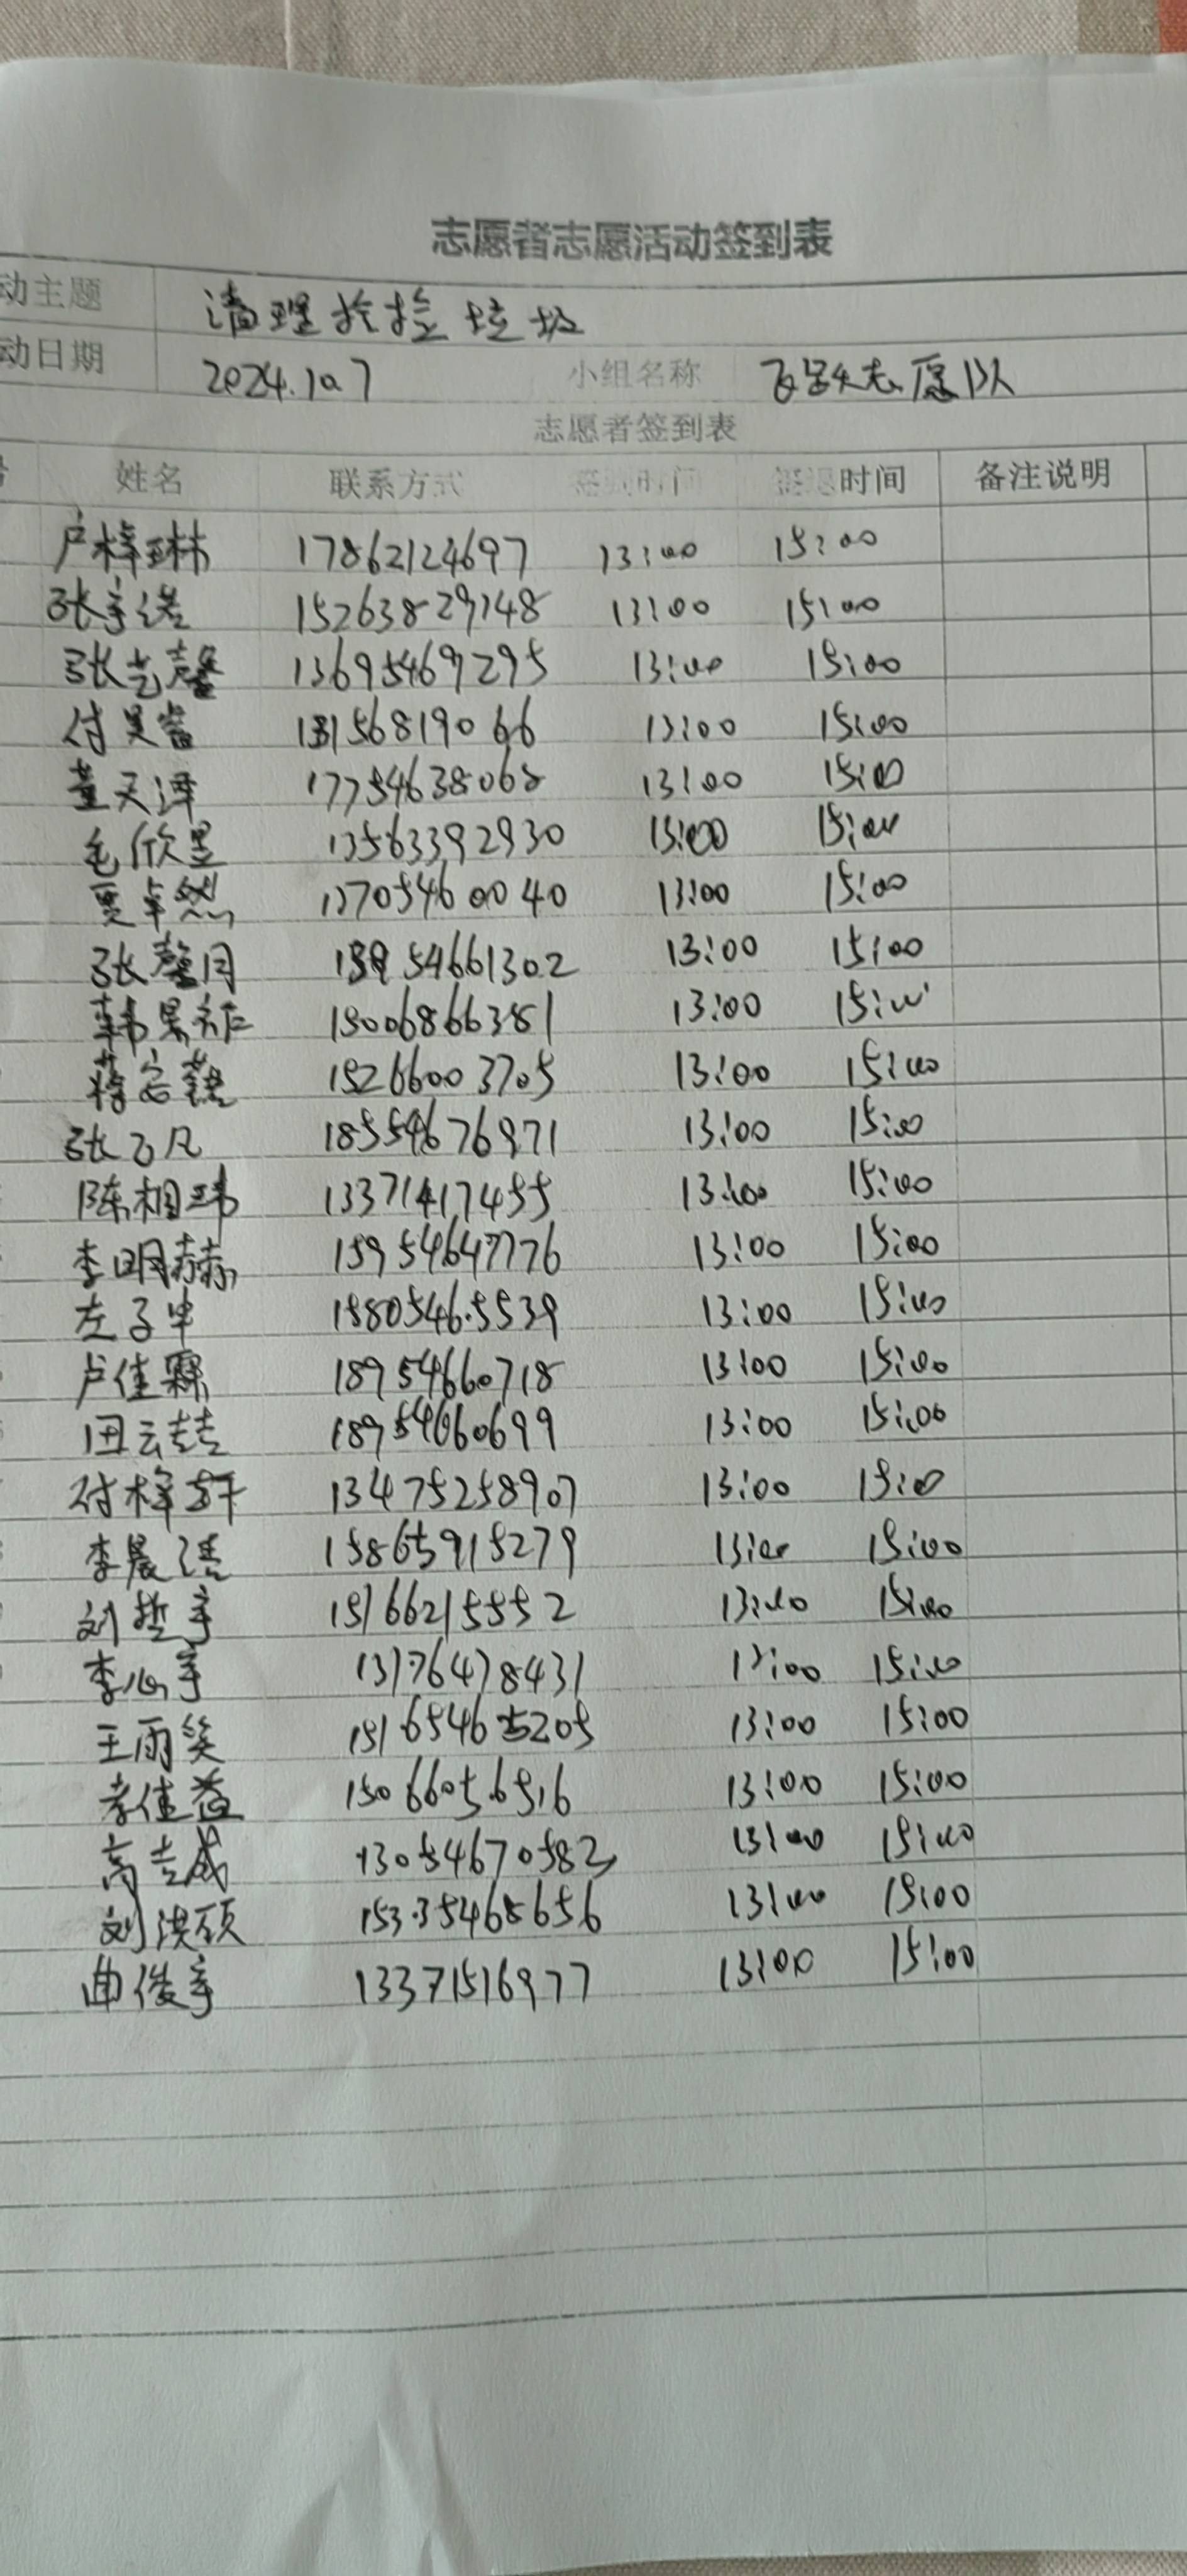 志愿者志愿活动签到表
动主题 清理捡捡垃圾
动日期 2024.10.7 小组名称 志愿队
志愿者签到表
姓名 联系方式 签到时间 签退时间 备注说明
卢梓琳 17862124697 13:00 15:00
张宇 15263829148 13:00 15:00
张艺馨 13695469295 13:00 15:00
付昊 13156819066 13:00 15:00
董天泽 17754638068 13:00 15:00
毛欣昱 13563392930 13:00 15:00
贾卓然 13705460040 13:00 15:00
张馨月 54661302 13:00 15:00
韩 15006866381 13:00 15:00
蒋 15266003705 13:00 15:00
张 凡 18554676971 13:00 15:00
陈相玮 13371417455 13:00 15:00
李明赫 15954647776 13:00 15:00
左子申 15805465539 13:00 15:00
卢佳霖 18954660718 13:00 15:00
田云喆 18954660699 13:00 15:00
付梓轩 13475258907 13:00 15:00
李晨 15865915279 13:00 15:00
刘哲宇 15166215552 13:00 15:00
李心宇 13176478431 13:00 15:00
王雨笑 15165465205 13:00 15:00
李佳益 15066056516 13:00 15:00
高 成 13054670582 13:00 15:00
刘洪硕 15335465656 13:00 15:00
曲俊宇 13371516977 13:00 15:00